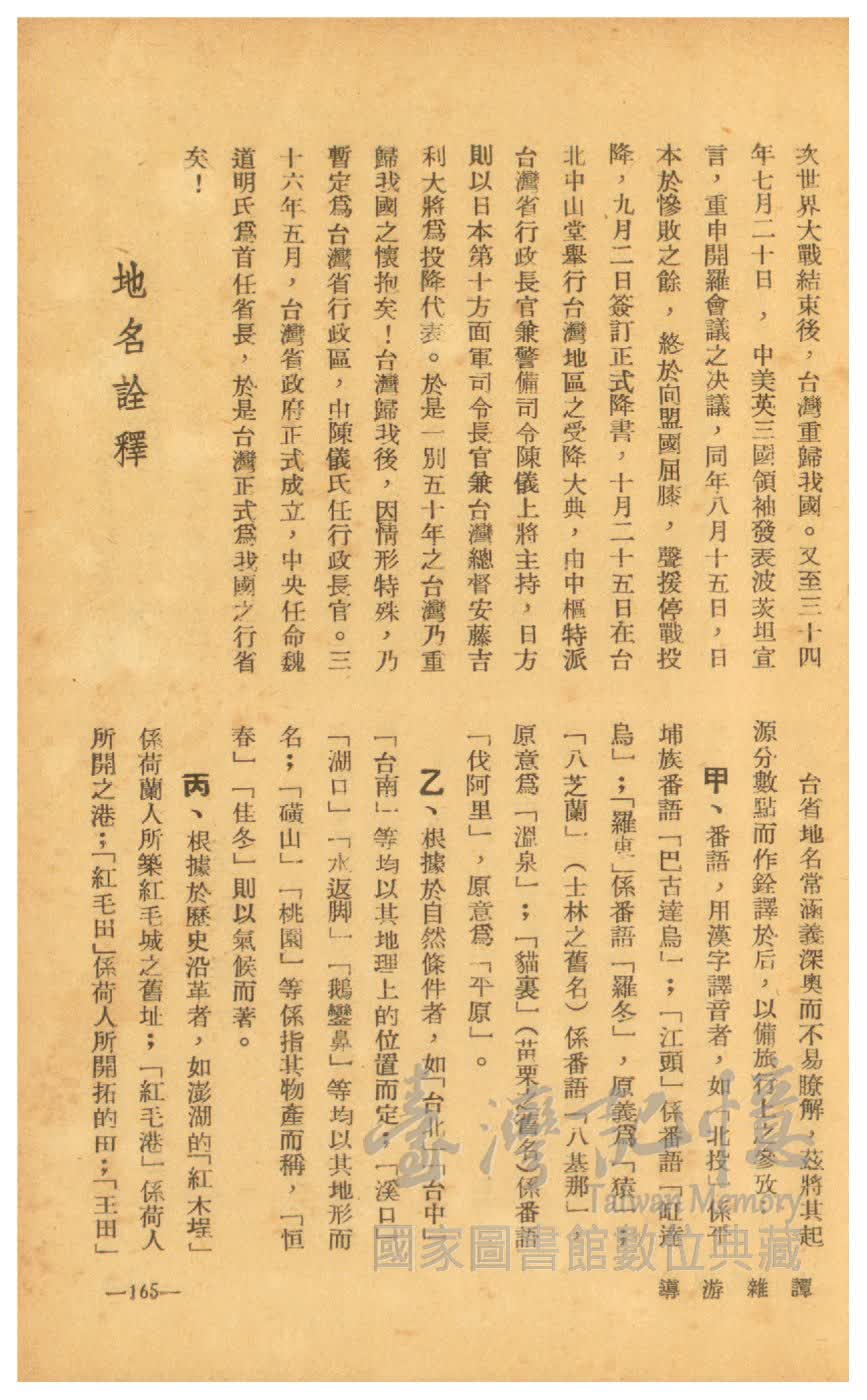 次世界大戰結束後，台灣重歸我國。又至三十四
年七月二十日，中美英三國領袖發表波茨坦宣
言，重申開羅會議之決議，同年八月十五日，日
本於慘敗之餘，終於向盟國屈膝，聲援停戰投
降，九月二日簽訂正式降書，十月二十五日在台
北中山堂舉行台灣地區之受降大典，由中樞特派
台灣省行政長官兼警備司令陳儀上將主持，日方
則以日本第十方面軍司令長官兼台灣總督安藤吉
利大將爲投降代表。於是一別五十年之台灣乃重
歸我國之懷抱矣！台灣歸我後，因情形特殊，乃
暫定爲台灣省行政區，由陳儀氏任行政長官。三
十六年五月，台灣省政府正式成立，中央任命魏
道明氏爲首任省長，於是台灣正式爲我國之行省
矣！
地名詮釋
台省地名常涵義深奧而不易瞭解，茲將其起
源分數點而作銓譯於后，以備旅行上之參攷：
甲、番語，用漢字譯音者，如「北投」係平
埔族番語「巴古達烏」；「江頭」係番語「缸達
烏」；「羅東」係番語「羅冬」，原義爲「猿」；
「八芝蘭」（士林之舊名）係番語「八基那」，
原意爲「溫泉」；「貓裏」（苗栗之舊名）係番語
「伐阿里」，原意爲「平原」。
乙、根據於自然條件者，如「台北」「台中」
「台南」等均以其地理上的位置而定；「溪口」
「湖口」「水返脚」「鵝鑾鼻」等均以其地形而
名；「磺山」「桃園」等係指其物產而稱，「恒
春」「佳冬」則以氣候而著。
丙、根據於歷史沿革者，如澎湖的「紅木埕」
係荷蘭人所築紅毛城之舊址；「紅毛港」係荷人
所開之港；「紅毛田」係荷人所開拓的田；「王田」
譚雜游導
—165—
臺灣記憶
Taiwan Memory
國家圖書館數位典藏